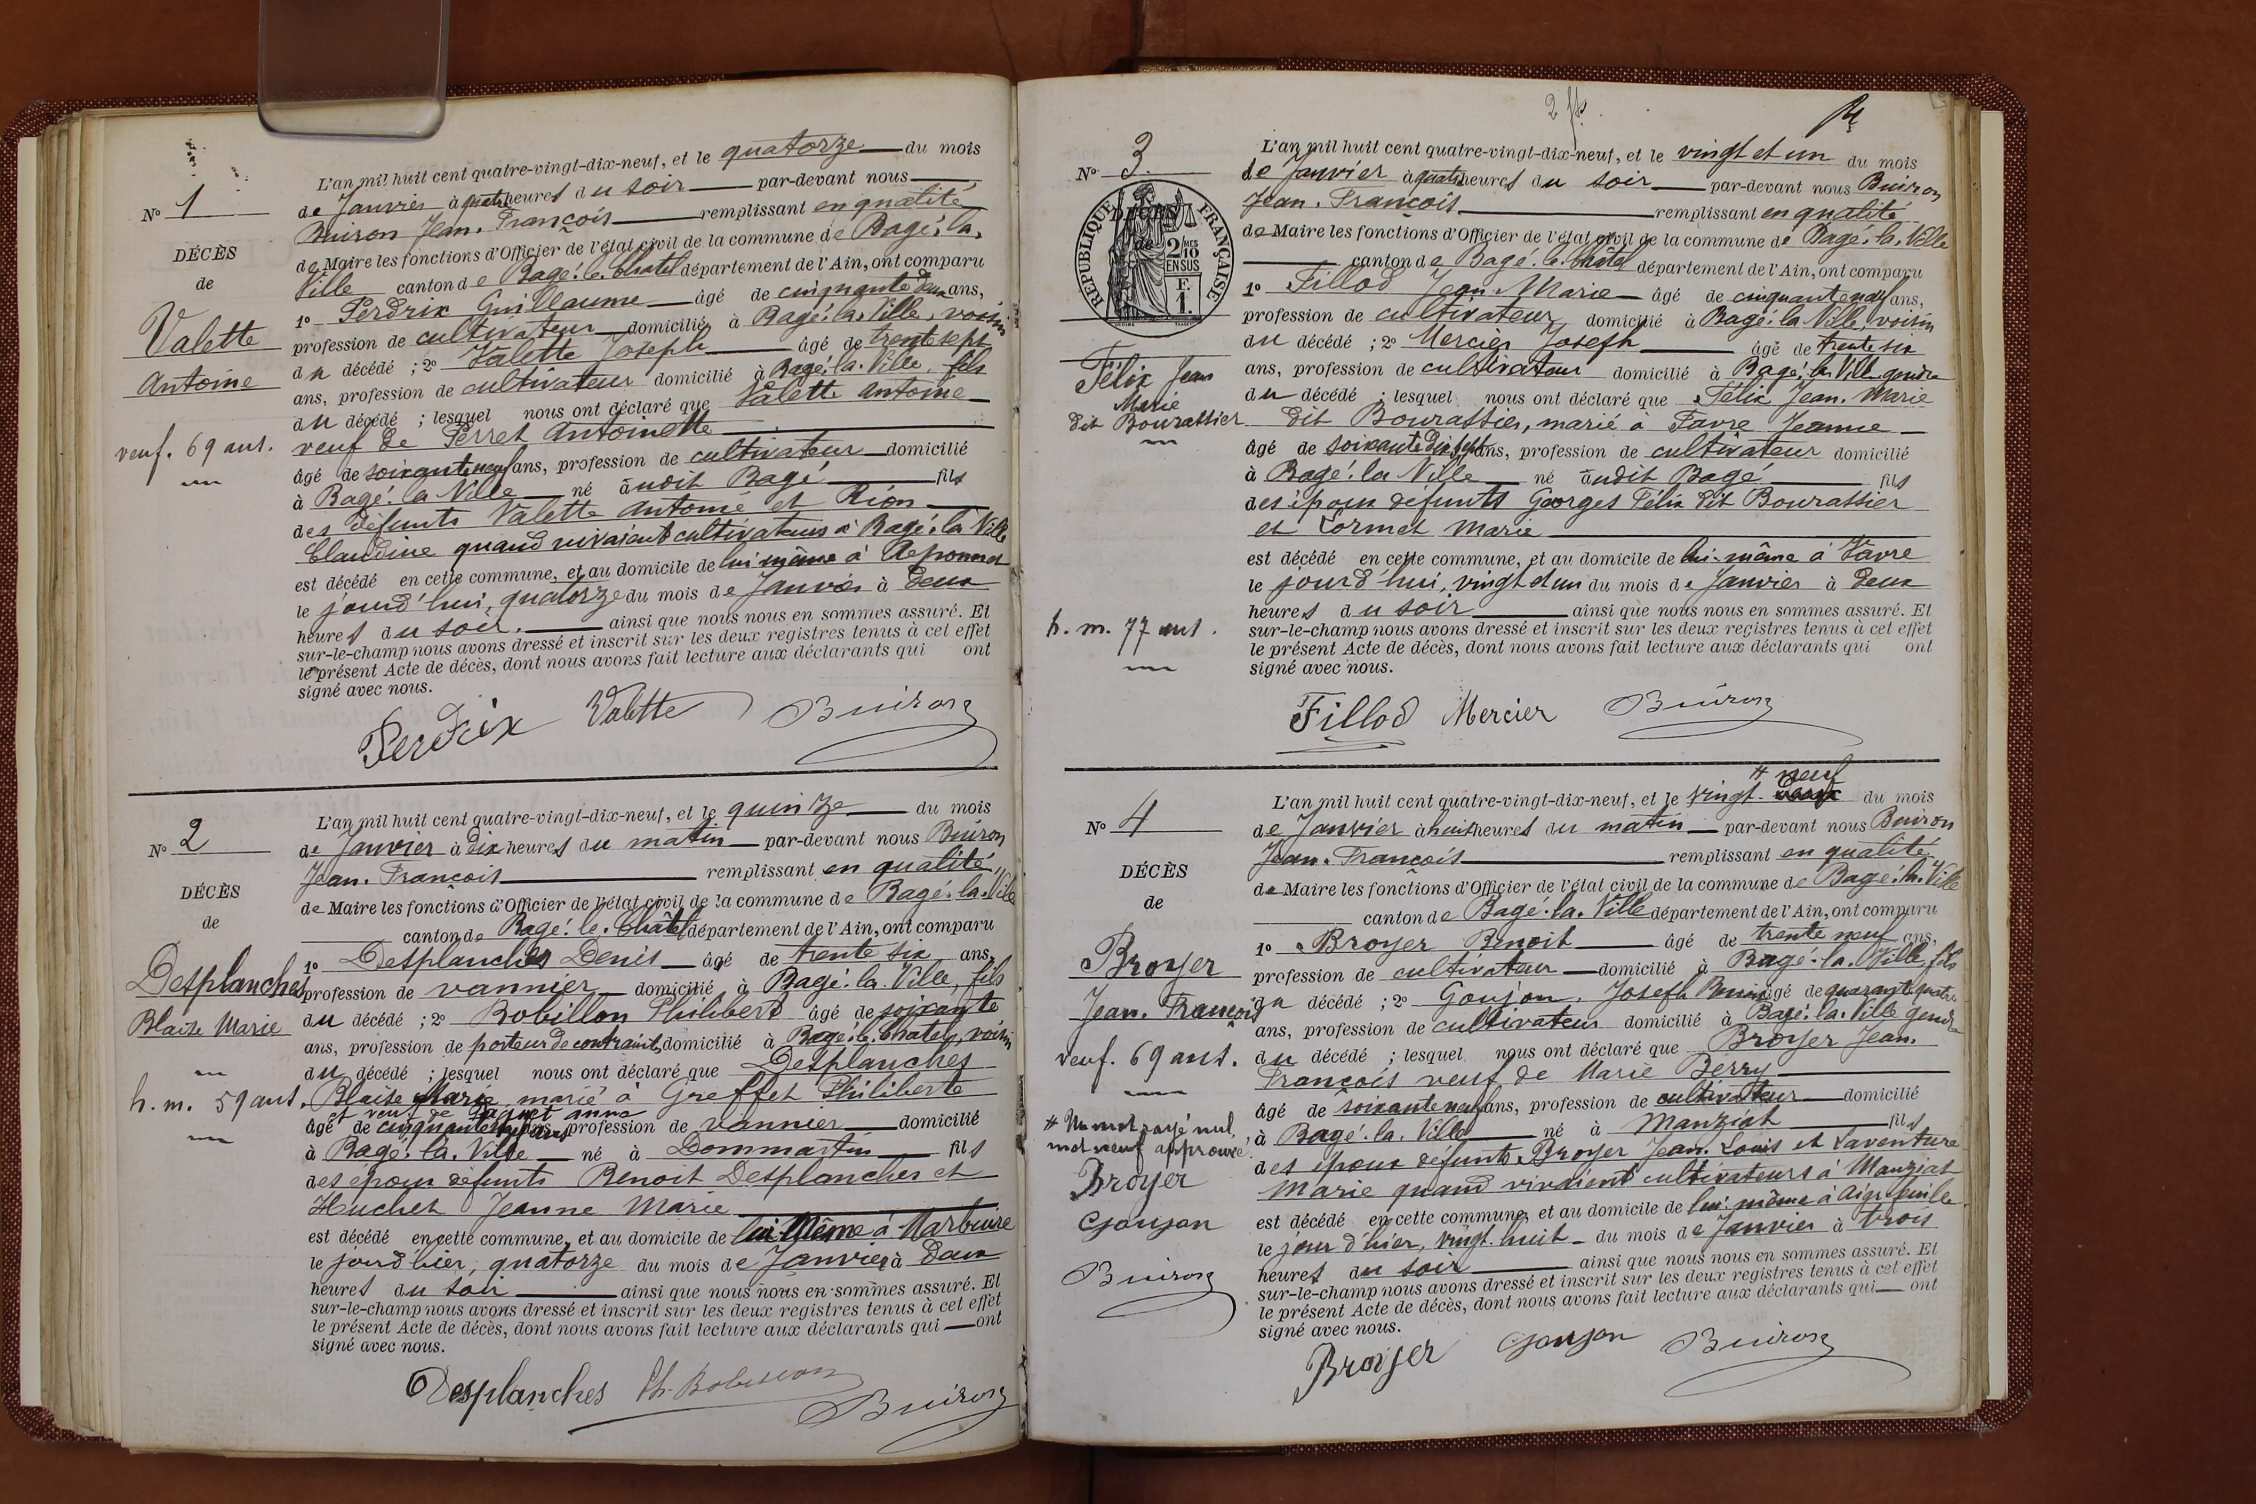 N° 1
DÉCÈS
de
Valette
Antoine
veuf. 69 ans.
L'an mil huit cent quatre-vingt-dix-neuf, et le quatorze du mois
de Janvier à quatre heures du soir par-devant nous
Buiron Jean. François remplissant en qualité
de Maire les fonctions d'Officier de l'état civil de la commune de Bagé. la.
Ville canton de Bagé. le. Châtel département de l'Ain, ont comparu
1° Perdrix Guilleaume âgé de cinquante deux ans,
profession de cultivateur domicilié à Bagé. la. Ville, voisin
du décédé ; 2° Valette Joseph âgé de trente sept
ans, profession de cultivateur domicilié à Bagé. la. Ville, fils
du décédé ; lesquel nous ont déclaré que Valette Antoine
veuf de Perret Antoinette
âgé de soixante neuf ans, profession de cultivateur domicilié
à Bagé. la Ville né audit Bagé fils
des défunts Valette Antoine et Rion
Claudine quand vivaient cultivateurs à Bagé. la Ville
est décédé en cette commune, et au domicile de lui même à
le jourd'hui, quatorze du mois de Janvier à deux
heures du soir. ainsi que nous nous en sommes assuré. Et
sur-le-champ nous avons dressé et inscrit sur les deux registres tenus à cet effet
le présent Acte de décès, dont nous avons fait lecture aux déclarants qui ont
signé avec nous.
Perdrix Valette Buiron
N° 2
DÉCÈS
de
Desplanches
Blaise Marie
h. m. 59 ans.
L'an mil huit cent quatre-vingt-dix-neuf, et le quinze du mois
de Janvier à dix heures du matin par-devant nous Buiron
Jean. François remplissant en qualité
de Maire les fonctions d'Officier de l'état civil de la commune de Bagé. la. Ville
canton de Bagé. le. Châtel département de l'Ain, ont comparu
1° Desplanches Denis âgé de trente six ans,
profession de vannier domicilié à Bagé. la. Ville, fils
du décédé ; 2° Robillon Philibert âgé de soixante
ans, profession de porteur de contraintes domicilié à Bagé. le. Chatel, voisin
du décédé ; lesquel nous ont déclaré que Desplanches
Blaise Marie marié à Greffet Philiberte
et veuf de Paquet anne
âgé de cinquante neuf ans profession de vannier domicilié
à Bagé. la. Ville né à Dommartin fils
des époux défunts Benoit Desplanches et
Huchet Jeanne Marie
est décédé en cette commune, et au domicile de lui Même à Marbuire
le jourd'hier, quatorze du mois de Janvier à Deux
heures du soir ainsi que nous nous en sommes assuré. Et
sur-le-champ nous avons dressé et inscrit sur les deux registres tenus à cet effet
le présent Acte de décès, dont nous avons fait lecture aux déclarants qui ont
signé avec nous.
Desplanches Ph. Robillon
Buiron
2
N° 3
DÉCÈS
de
RÉPUBLIQUE FRANÇAISE
2 MES 10 EN SUS
F. 1.
Félix Jean
Marie
dit Bourassier
h. m. 77 ans.
L'an mil huit cent quatre-vingt-dix-neuf, et le vingt et un du mois
de Janvier à quatre heures du soir par-devant nous Buiron
Jean. François remplissant en qualité
de Maire les fonctions d'Officier de l'état civil de la commune de Bagé. la. Ville
canton de Bagé. le. Châtel département de l'Ain, ont comparu
1° Fillod Jean. Marie âgé de cinquante neuf ans,
profession de cultivateur domicilié à Bagé. la Ville, voisin
du décédé ; 2° Mercier Joseph âgé de trente six
ans, profession de cultivateur domicilié à Bagé. la Ville gendre
du décédé ; lesquel nous ont déclaré que Félix Jean. Marie
dit Bourassier, marié à Favre Jeanne
âgé de soixante dix sept ans, profession de cultivateur domicilié
à Bagé. la Ville né audit Bagé fils
des époux défunts Georges Félix dit Bourassier
et Cormet Marie
est décédé en cette commune, et au domicile de lui-même à Vavre
le jourd'hui, vingt et un du mois de Janvier à deux
heures du soir ainsi que nous nous en sommes assuré. Et
sur-le-champ nous avons dressé et inscrit sur les deux registres tenus à cet effet
le présent Acte de décès, dont nous avons fait lecture aux déclarants qui ont
signé avec nous.
Fillod Mercier Buiron
N° 4
DÉCÈS
de
Broyer
Jean. François
veuf. 69 ans.
# Un mot rayé nul
mot neuf approuvé.
Broyer
Goujon
Buiron
# neuf
L'an mil huit cent quatre-vingt-dix-neuf, et le vingt du mois
de Janvier à huit heures du matin par-devant nous Buiron
Jean. François remplissant en qualité
de Maire les fonctions d'Officier de l'état civil de la commune de Bagé. la. Ville
canton de Bagé. la. Ville département de l'Ain, ont comparu
1° Broyer Benoit âgé de trente neuf ans,
profession de cultivateur domicilié à Bagé. la. Ville, fils
du décédé ; 2° Goujon. Joseph âgé de quarante quatre
ans, profession de cultivateur domicilié à Bagé. la. Ville gendre
du décédé ; lesquel nous ont déclaré que Broyer Jean.
François veuf de Marie Berry
âgé de soixante neuf ans, profession de cultivateur domicilié
à Bagé. la. Ville né à Manziat fils
des époux défunts Broyer Jean. Louis et Laventure
Marie quand vivaient cultivateurs à Manziat
est décédé en cette commune, et au domicile de lui. même à Aigrefeuille
le jour d'hier, vingt. huit du mois de Janvier à trois
heures du soir ainsi que nous nous en sommes assuré. Et
sur-le-champ nous avons dressé et inscrit sur les deux registres tenus à cet effet
le présent Acte de décès, dont nous avons fait lecture aux déclarants qui ont
signé avec nous.
Broyer Goujon Buiron